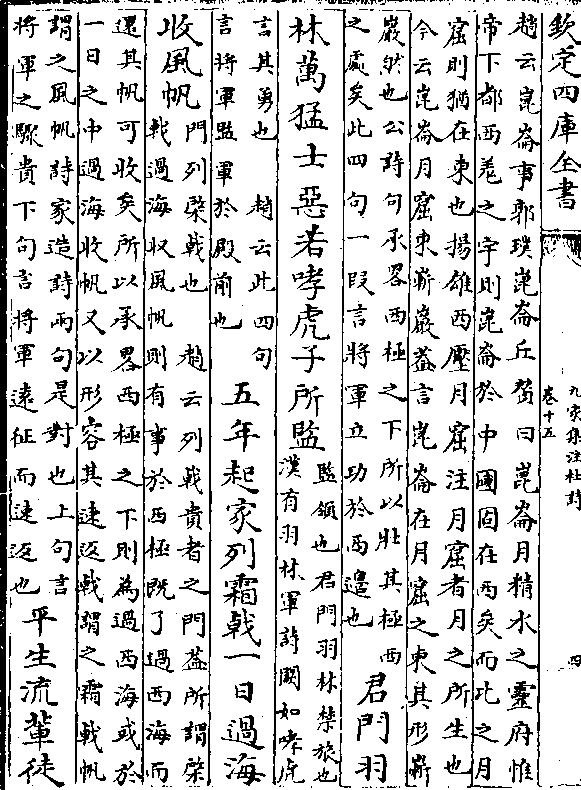 欽定四庫全書
九家集注杜詩
卷十五
四
趙云崑崙事郭璞崑崙丘贊曰崑崙月精水之靈府惟
帝下都西羌之宇則崑崙於中國固在西矣而此之月
窟則猶在東也揚雄西壓月窟注月窟者月之所生也
今云崑崙月窟東嶄巖蓋言崑崙在月窟之東其形嶄
巖然也公詩句承畧西極之下所以壯其極西
之處矣此四句一段言將軍立功於西邊也
君門羽
林萬猛士惡若哮虎子所監
監領也君門羽林禁旅也
漢有羽林軍詩闞如哮虎
言其勇也 趙云此四句
言將軍監軍於殿前也
五年起家列霜戟一日過海
收風帆
門列棨戟也 趙云列戟貴者之門蓋所謂棨
戟過海収風帆則有事於西極既了過西海而
還其帆可收矣所以承畧西極之下則為過西海或於
一日之中過海收帆又以形容其速返戟謂之霜戟帆
謂之風帆詩家造詩兩句是對也上句言
將軍之驟貴下句言將軍遠征而速返也
平生流輩徒